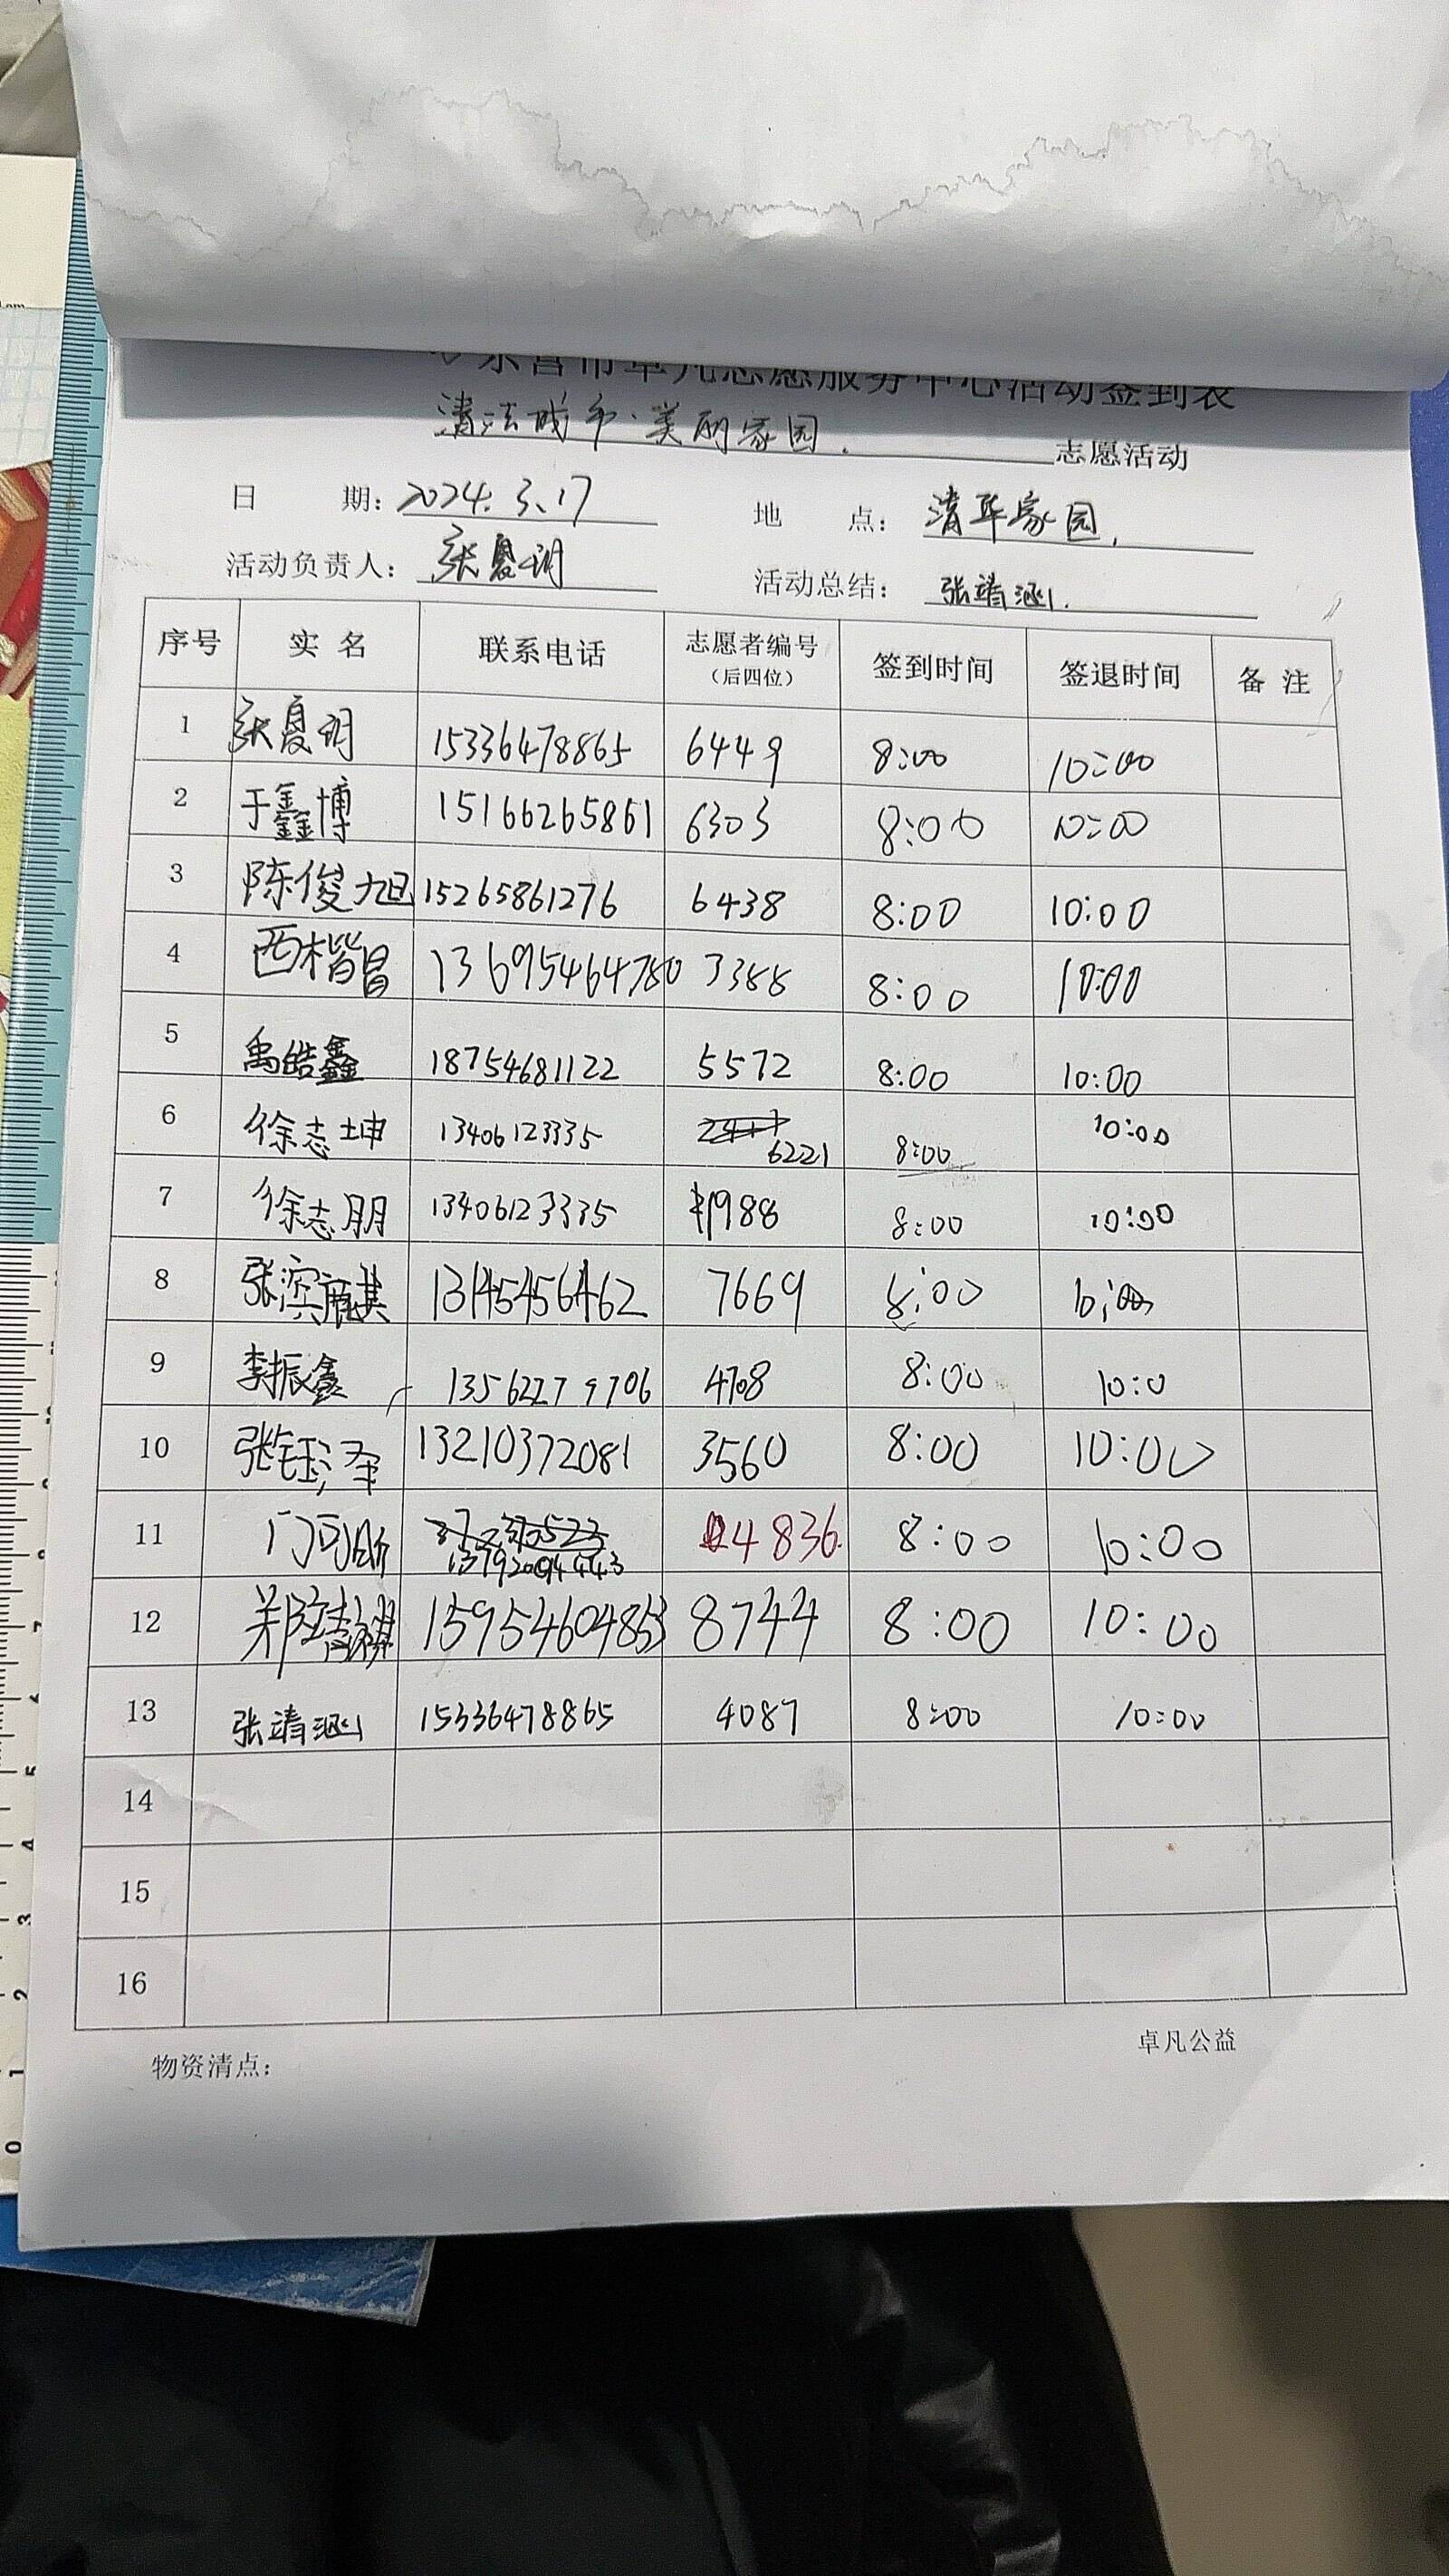 东营市卓凡志愿服务中心活动签到表
清洁城市·美丽家园. 志愿活动
日 期: 2024.3.17 地 点: 清华家园.
活动负责人: 张夏玥 活动总结: 张靖涵.
序号 实 名 联系电话 志愿者编号 (后四位) 签到时间 签退时间 备 注
1 张夏玥 15336478865 6449 8:00 10:00
2 于鑫博 15166265861 6303 8:00 10:00
3 陈俊旭 15265861276 6438 8:00 10:00
4 西楷昌 13695464780 3388 8:00 10:00
5 禹皓鑫 18754681122 5572 8:00 10:00
6 徐志坤 13406123335 6221 8:00 10:00
7 徐志朋 13406123335 1988 8:00 10:00
8 张滨麒 13145456462 7669 8:00 10:00
9 李振鑫 13562279706 4708 8:00 10:0
10 张钰泽 13210372081 3560 8:00 10:00
11 门可昕 4836 8:00 10:00
12 郑靖祺 15954604853 8744 8:00 10:00
13 张靖涵 15336478865 4087 8:00 10:00
14
15
16
物资清点: 卓凡公益